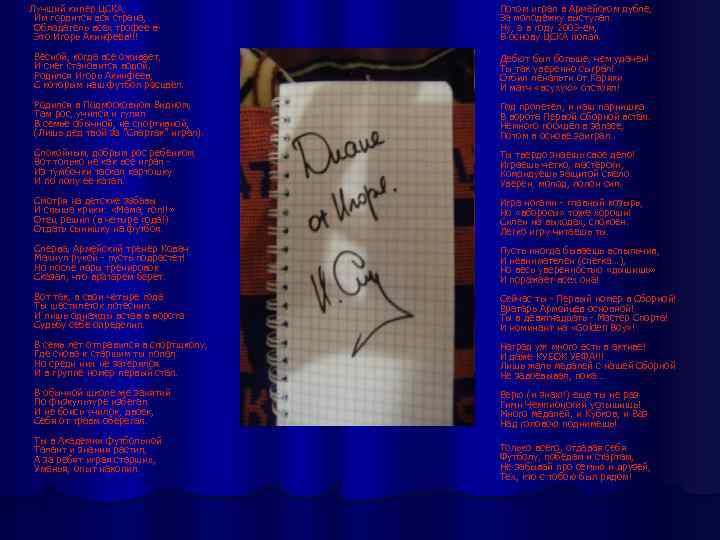 Лучший кипер ЦСКА,
Им гордится вся страна,
Обладатель всех трофеев-
Это Игорь Акинфеев!!!
Весной, когда всё оживает,
И снег становится водой,
Родился Игорь Акинфеев,
С которым наш футбол расцвёл.
Родился в Подмосковном Видном,
Там рос, учился и гулял
В семье обычной, не спортивной,
(Лишь дед твой за "Спартак" играл).
Спокойным, добрым рос ребёнком,
Вот только не как все играл -
Из тумбочки таскал картошку
И по полу её катал.
Смотря на детские забавы
И слыша крики: «Мама, гол!!»
Отец решил (в четыре года!)
Отдать сынишку на футбол.
Сперва, Армейский тренер Ковач
Махнул рукой - пусть подрастёт!
Но после пары тренировок
Сказал, что вратарём берёт.
Вот так, в свои четыре года
Ты шестилеток потеснил.
И лишь однажды встав в ворота
Судьбу себе определил.
В семь лет отправился в спортшколу,
Где снова к старшим ты попал.
Но среди них не затерялся
И в группе номер первый стал.
В обычной школе же занятий
По физкультуре избегал.
И не боясь училок, двоек,
Себя от травм оберегал.
Ты в Академии футбольной
Талант и знания растил,
А за ребят играя старших,
Уменья, опыт накопил.
Потом играл в Армейском дубле,
За молодёжку выступал.
Ну, а в году 2003-ем,
В основу ЦСКА попал.
Дебют был больше, чем удачен!
Ты так уверенно сыграл!
Отбил пенальти от Каряки
И матч «всухую» отстоял!
Год пролетел, и наш парнишка
В ворота Первой Сборной встал.
Немного посидел в запасе,
Потом в основе заиграл.
Ты твёрдо знаешь своё дело!
Играешь чётко, мастерски,
Командуешь защитой смело.
Уверен, молод, полон сил.
Игра ногами - главный козырь,
Но «вбросы» тоже хороши!
Силён на выходах, спокоен.
Легко игру читаешь ты.
Пусть иногда бываешь вспыльчив,
И невнимателен (слегка...),
Но весь уверенностью «дышишь»
И поражаешь всех она!
Сейчас ты - Первый номер в Сборной!
Вратарь Армейцев основной!
Ты в девятнадцать - Мастер Спорта!
И номинант на «Golden Boy»!
Наград уж много есть в активе!
И даже КУБОК УЕФА!!!
Лишь жаль медалей с нашей Сборной
Не завоёвывал, пока...
Верю (и знаю!) ещё ты не раз
Гимн Чемпионский услышишь!
Много медалей, и Кубков, и Ваз
Над головою поднимешь!
Только всего, отдавая себя
Футболу, победам и стартам,
Не забывай про семью и друзей,
Тех, кто с тобою был рядом!
Диане
от Игоря.